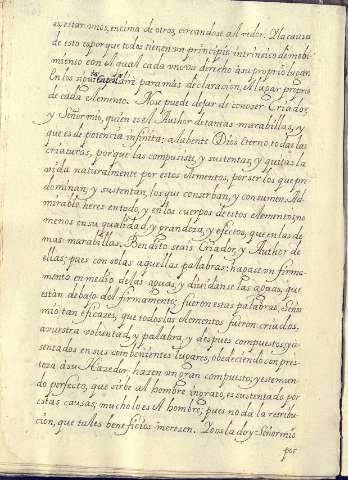 es, estar unos, encima de otros, cercandose al redor. Y la causa
de esto es porque todos tienen un principio intrinsico de mobi-
miento con el qual cada uno va derecho a su proprio lugar.
En los siguientes dire para mas declaracion, el lugar proprio
de cada elemento. No se puede dejar de conoser Criador,
y Señor mio, quien es el Author de tantas marabillas, y
que es de potencia infinita: alabente Dios eterno todas las
criaturas, porque las compusiste, y sustentas, y quitas la
vida naturalmente por estos elementos, por ser los que pre
dominan; y sustentan, los que conserban, y consumen. Ad-
mirable heres en todo, y en los cuerpos de estos elementos no
menos en su qualidad, y grandeza, y efectos, que en las de
mas marabillas. Bendito seais Criador, y Author de
ellas; pues con solas aquellas palabras: hagase en firma-
mento en medio de las aguas, y dividanse las aguas, que
estan debajo del firmamento: fueron estas palabras, Señor
mio tan eficazes, que todos los elementos fueron criados,
a vuestra voluntad, y palabra, y despues compuestos, y a-
sentados en sus conbenientes lugares, obedeciendo con pres-
teza a su Hazedor, hazen un gran compuesto; y este mun-
do perfecto, que sirbe al hombre yngrato, es sustentado por
estas causas; mucho lo es el hombre, pues no da la retribu-
cion, que tales beneficios meresen. Y Señor mio
por